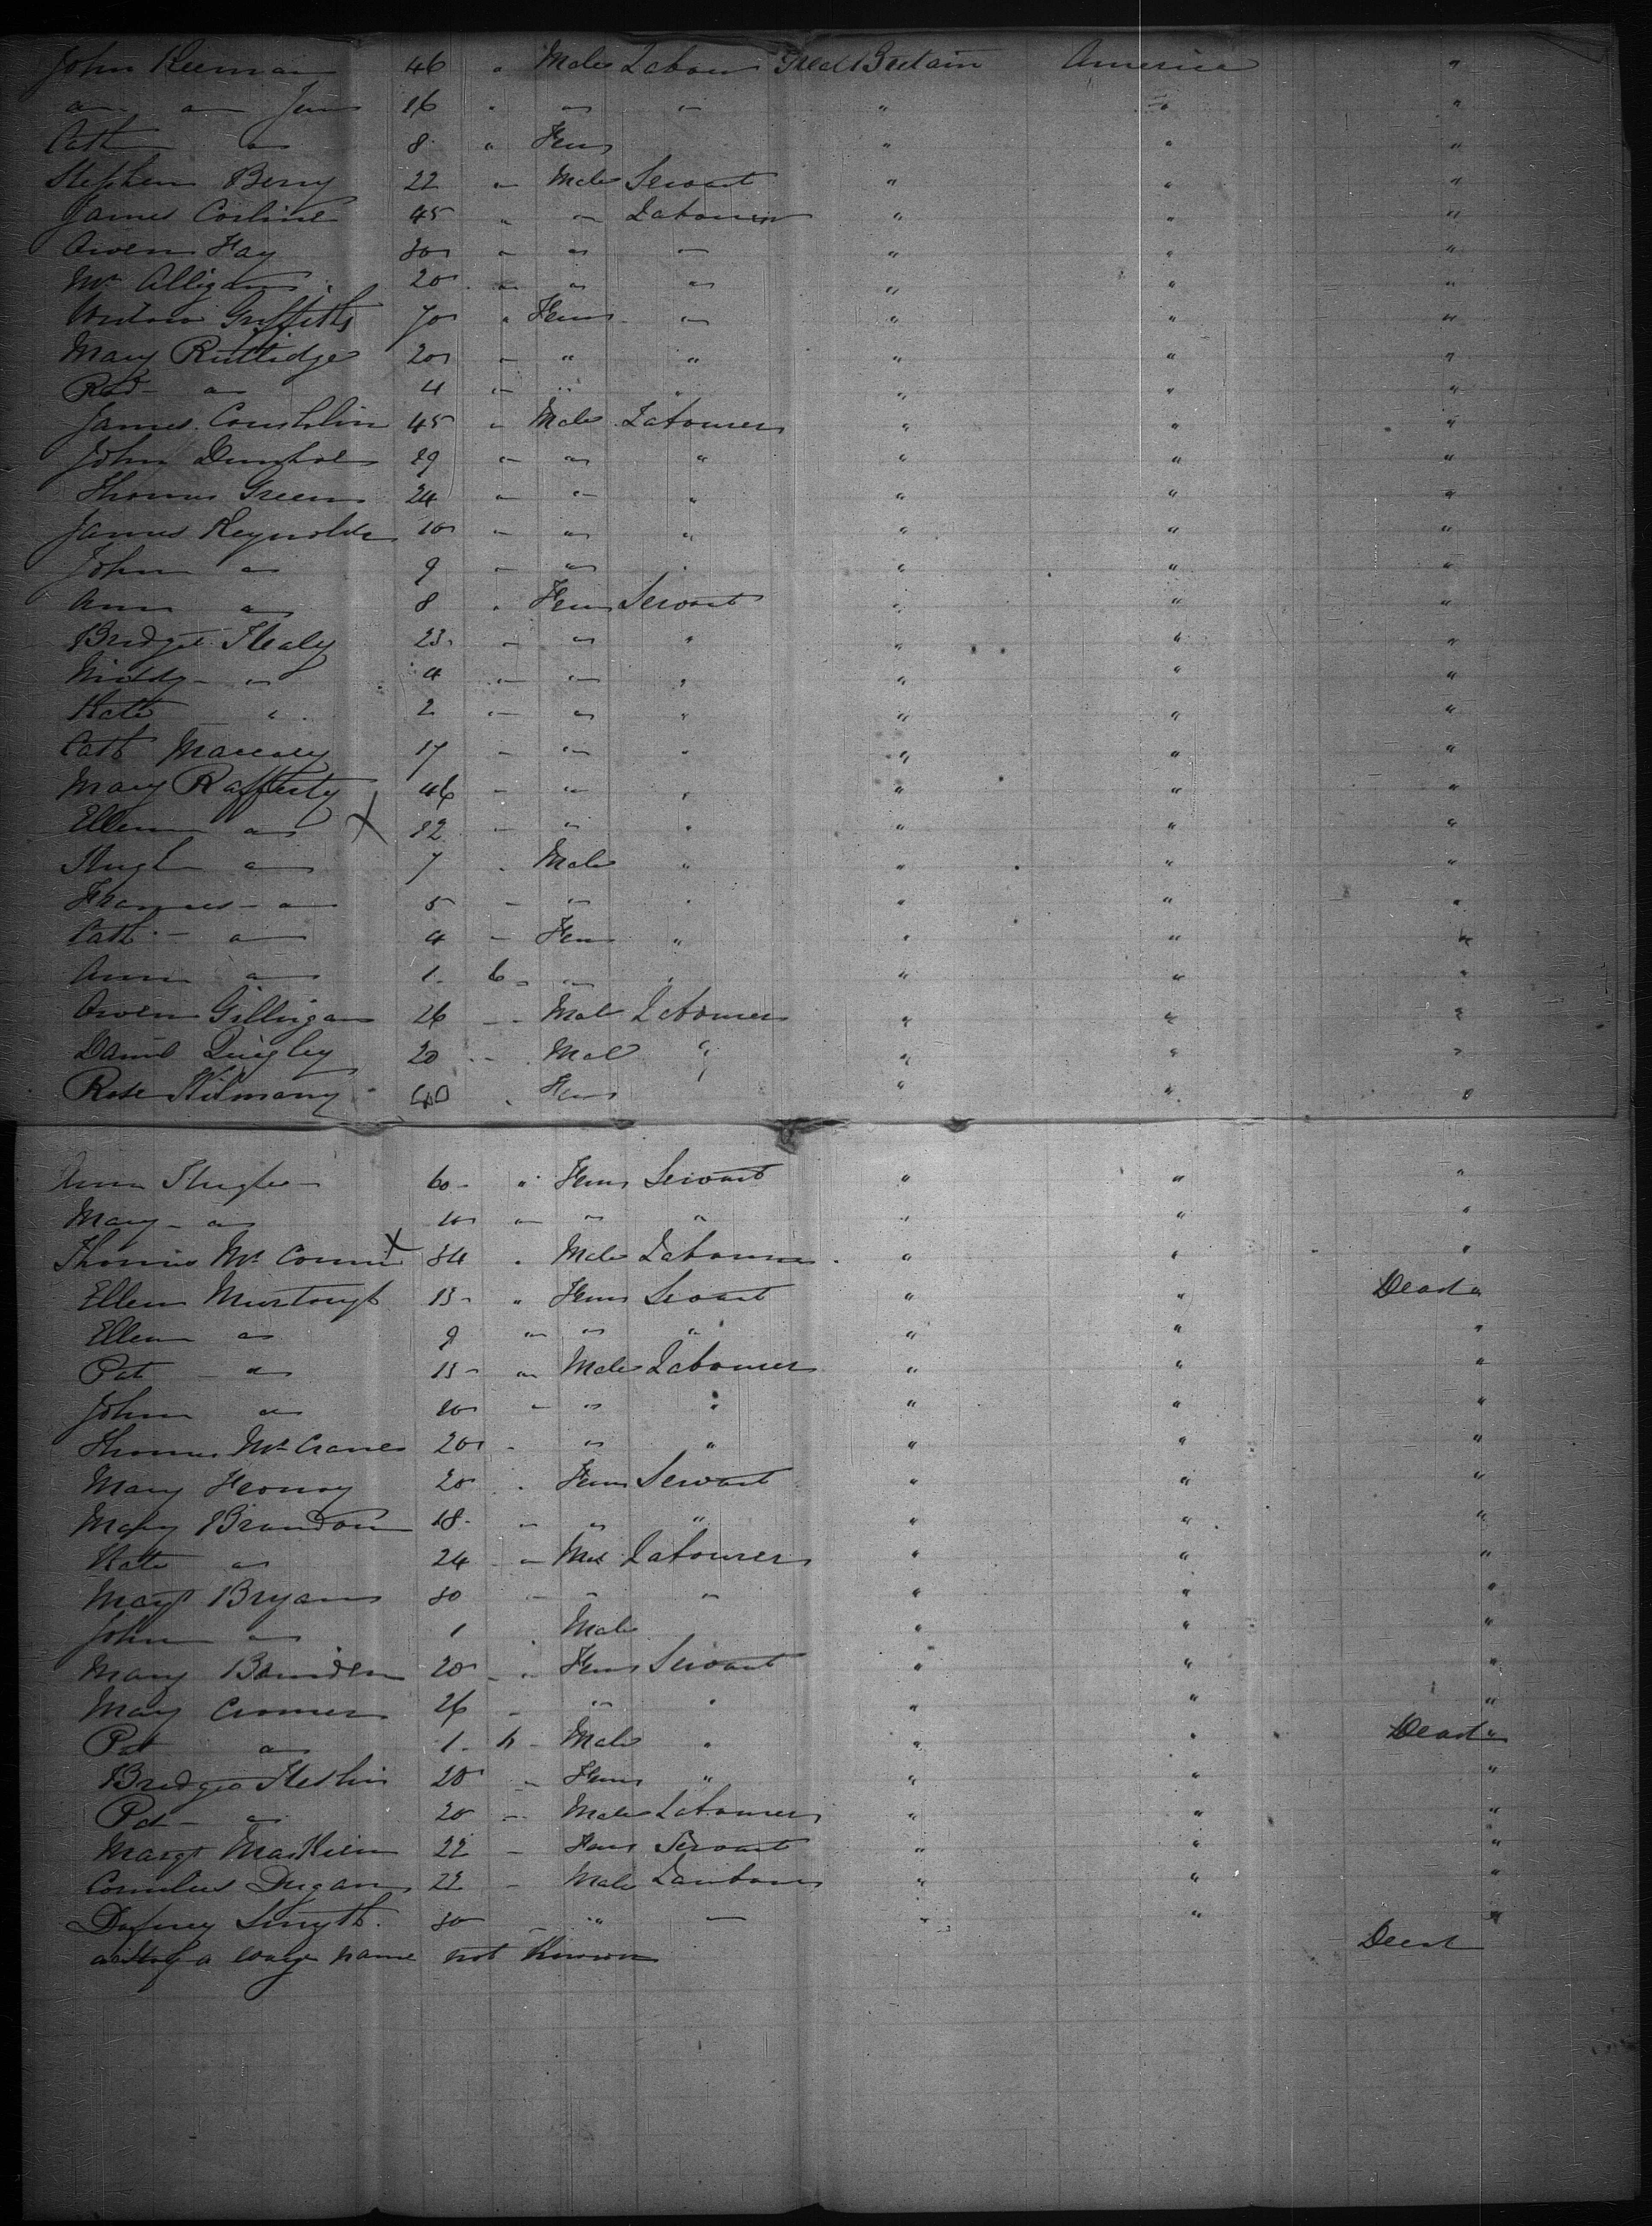 John Kiernan 46 " Male Labour Great Britain America "
" " Jun 16 " " " " " "
Cath " 8 " Fem " " "
Stephen Berry 22 " Male Servant " " "
James Corline 45 " " Labourer " " "
Owen Fay 30 " " " " " "
Mc Alligan 20 " " " " " "
Widow Griffiths 70 " Fem " " " "
Mary Rutlidge 20 " " " " " "
" 4 " " " " " "
James Coughlin 45 " Male Labourer " " "
John 29 " " " " " "
Thomas Green 24 " " " " " "
James Reynolds 10 " " " " " "
John " 9 " " " " " "
Ann " 8 " Fem Servant " " "
Bridget Healy 23 " " " " " "
" 4 " " " " " "
Kate " 2 " " " " " "
Cath 17 " " " " " "
Mary Rafferty 46 " " " " " "
Ellen " X 12 " " " " " "
Hugh " 7 " Male " " " "
Frances " 5 " " " " " "
Cath " 4 " Fem " " " "
Ann " 1 6 " " " " "
Owen Gilligan 26 " Male Labourer " " "
Daniel Quigley 20 " Male " " " "
Rose 40 " Fem " " "
Ann Hughes 60 " Fem Servant " " "
Mary " 10 " " " " " "
Thomas Mc X 34 " Male Labourer " " "
Ellen Murtough 13 " Fem Servant " " Dead "
Ellen " 9 " " " " " "
Pat " 13 " Male Labourer " " "
John " 10 " " " " " "
Thomas Mc Crane 20 " " " " " "
Mary 20 " Fem Servant " " "
Mary Brandon 18 " " " " " "
Kate " 24 " Mal Labourer " " "
Margt Bryan 30 " " " " " "
John " 1 " Male " " "
Mary 20 " Fem Servant " " "
Mary 26 " " " " " "
Pat " 1 " Male " " " Dead "
Bridget Heslin 20 " Fem " " " "
Pat " 20 " Male Labourer " " "
Margt 22 " Fem Servant " " "
Cornelius Dugan 22 " Male " " "
Smyth 30 " " " " " "
name not Known Dead